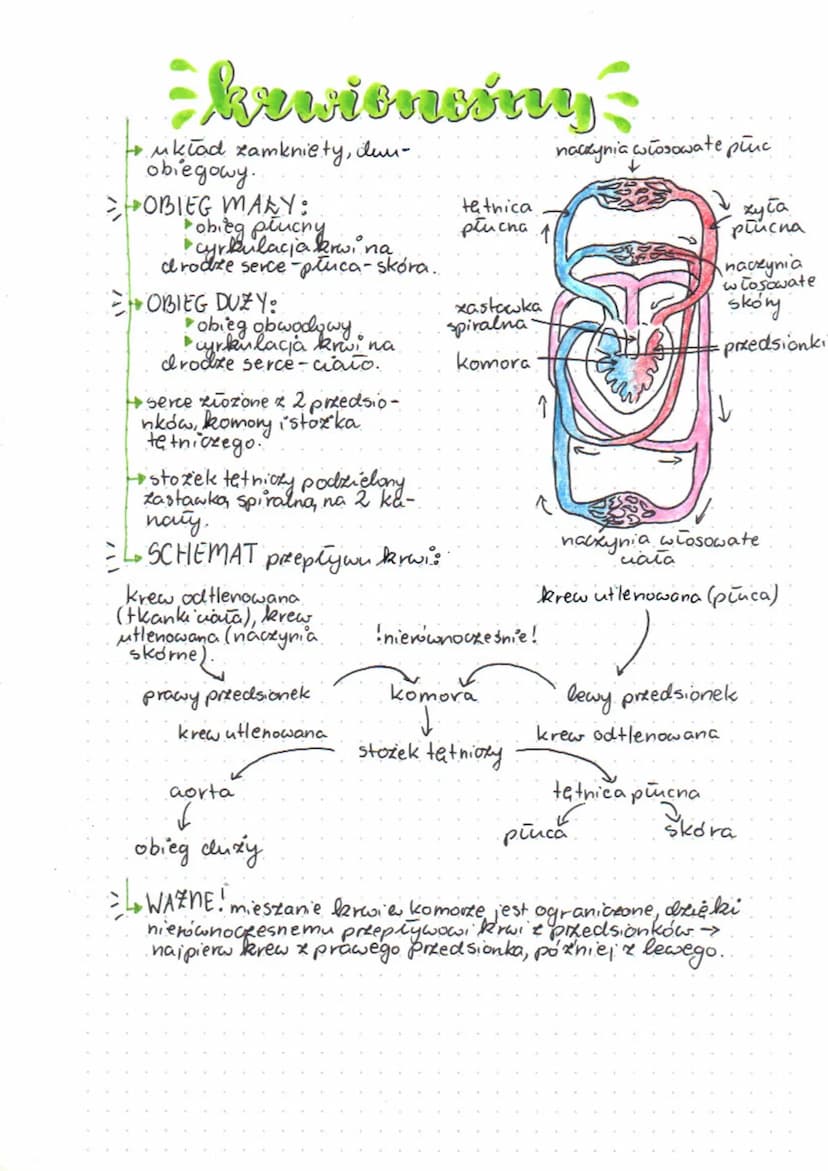 krwionośny
układ zamknięty, dwu-
obiegowy.
OBIEG MAŁY:
obieg płucny
cyrkulacja krwi na
drodze serce-płuca-skóra.
OBIEG DUŻY:
obieg obwodowy
cyrkulacja krwi na
drodze serce-ciało.
serce złożone z 2 przedsio-
nków, komory i stożka
tętniczego.
stożek tętniczy podzielony
zastawką spiralną na 2 ka-
nały.
naczynia włosowate płuc
tętnica
płucna
żyła
płucna
naczynia
włosowate
skóry
zastawka
spiralna
komora
przedsionki
naczynia włosowate
ciała
SCHEMAT przepływu krwi:
krew odtlenowana
(tkanki ciała), krew
utlenowana (naczynia
skórne).
!nierównocześnie!
krew utlenowana (płuca)
prawy przedsionek
komora
lewy przedsionek
krew utlenowana
krew odtlenowana
stożek tętniczy
aorta
tętnica płucna
obieg duży
płuca
skóra
WAŻNE! mieszanie krwi w komorze jest ograniczone, dzięki
nierównoczesnemu przepływowi krwi z przedsionków →
najpierw krew z prawego przedsionka, później z lewego.